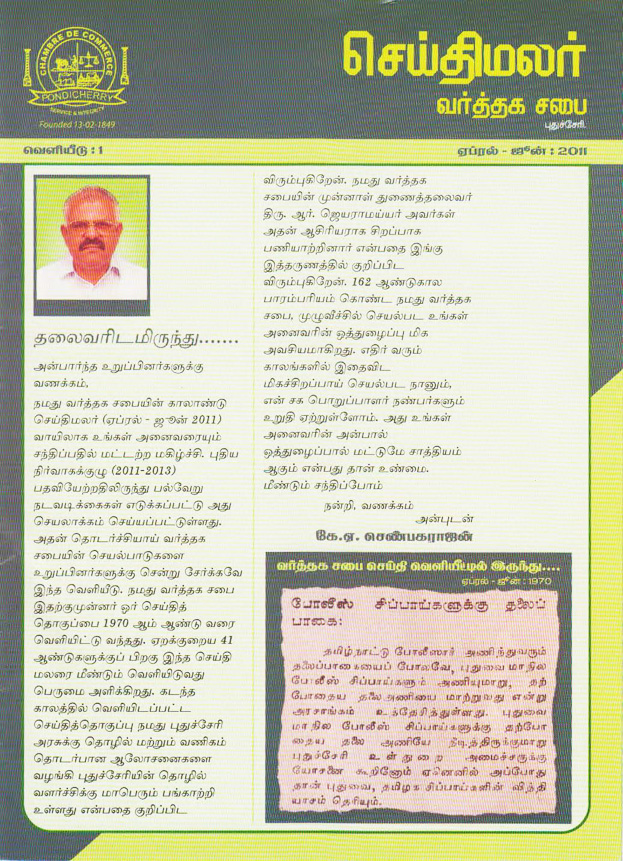 CHAMBRE DE COMMERCE
PONDICHERRY
SERVICE & INTEGRITY
Founded 13-02-1849
செய்திமலர்
வர்த்தக சபை
புதுச்சேரி.
வெளியீடு : 1
ஏப்ரல் - ஜூன் : 2011
தலைவரிடமிருந்து.......
அன்பார்ந்த உறுப்பினர்களுக்கு
வணக்கம்,
நமது வர்த்தக சபையின் காலாண்டு
செய்திமலர் (ஏப்ரல் - ஜூன் 2011)
வாயிலாக உங்கள் அனைவரையும்
சந்திப்பதில் மட்டற்ற மகிழ்ச்சி. புதிய
நிர்வாகக்குழு (2011-2013)
பதவியேற்றதிலிருந்து பல்வேறு
நடவடிக்கைகள் எடுக்கப்பட்டு அது
செயலாக்கம் செய்யப்பட்டுள்ளது.
அதன் தொடர்ச்சியாய் வர்த்தக
சபையின் செயல்பாடுகளை
உறுப்பினர்களுக்கு சென்று சேர்க்கவே
இந்த வெளியீடு. நமது வர்த்தக சபை
இதற்குமுன்னர் ஓர் செய்தித்
தொகுப்பை 1970 ஆம் ஆண்டு வரை
வெளியிட்டு வந்தது. ஏறக்குறைய 41
ஆண்டுகளுக்குப் பிறகு இந்த செய்தி
மலரை மீண்டும் வெளியிடுவது
பெருமை அளிக்கிறது. கடந்த
காலத்தில் வெளியிடப்பட்ட
செய்தித்தொகுப்பு நமது புதுச்சேரி
அரசுக்கு தொழில் மற்றும் வணிகம்
தொடர்பான ஆலோசனைகளை
வழங்கி புதுச்சேரியின் தொழில்
வளர்ச்சிக்கு மாபெரும் பங்காற்றி
உள்ளது என்பதை குறிப்பிட
விரும்புகிறேன். நமது வர்த்தக
சபையின் முன்னாள் துணைத்தலைவர்
திரு. ஆர். ஜெயராமய்யர் அவர்கள்
அதன் ஆசிரியராக சிறப்பாக
பணியாற்றினார் என்பதை இங்கு
இத்தருணத்தில் குறிப்பிட
விரும்புகிறேன். 162 ஆண்டுகால
பாரம்பரியம் கொண்ட நமது வர்த்தக
சபை, முழுவீச்சில் செயல்பட உங்கள்
அனைவரின் ஒத்துழைப்பு மிக
அவசியமாகிறது. எதிர் வரும்
காலங்களில் இதைவிட
மிகச்சிறப்பாய் செயல்பட நானும்,
என் சக பொறுப்பாளர் நண்பர்களும்
உறுதி ஏற்றுள்ளோம். அது உங்கள்
அனைவரின் அன்பால்
ஒத்துழைப்பால் மட்டுமே சாத்தியம்
ஆகும் என்பது தான் உண்மை.
மீண்டும் சந்திப்போம்
நன்றி, வணக்கம்
அன்புடன்
கே.ஏ. செண்பகராஜன்
வர்த்தக சபை செய்தி வெளியீட்டில் இருந்து....
ஏப்ரல் - ஜூன் : 1970
போலீஸ் சிப்பாய்களுக்கு தலைப்
பாகை:
தமிழ்நாட்டு போலீஸார் அணிந்துவரும்
தலைப்பாகையைப் போலவே, புதுவை மாநில
போலீஸ் சிப்பாய்களும் அணியுமாறு, தற்
போதைய தலை அணியை மாற்றுவது என்று
அரசாங்கம் உத்தேசித்துள்ளது. புதுவை
மாநில போலீஸ் சிப்பாய்களுக்கு தற்போ
தைய தலை அணியே நீடித்திருக்குமாறு
புதுச்சேரி உள்துறை அமைச்சருக்கு
யோசனை கூறினோம் ஏனெனில் அப்போது
தான் புதுவை, தமிழக சிப்பாய்களின் வித்தி
யாசம் தெரியும்.